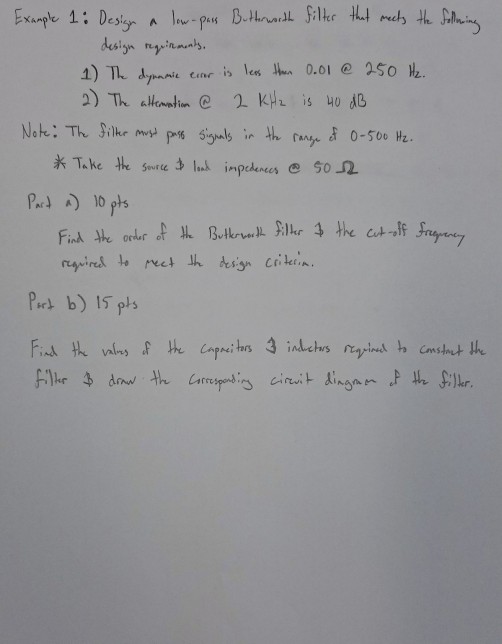 Example 1: Design a low-pass Butterworth filter that meets the following
design requirements.
1) The dynamic error is less than 0.01 @ 250 Hz.
2) The attenuation @ 2 KHz is 40 dB
Note: The filter must pass signals in the range of 0-500 Hz.
* Take the source & load impedences @ 50 Ω
Part a) 10 pts
Find the order of the Butterworth filter & the cut-off frequency
required to meet the design criteria.
Part b) 15 pts
Find the values of the capacitors & inductors required to constuct the
filter & draw the corresponding circuit diagram of the filter.